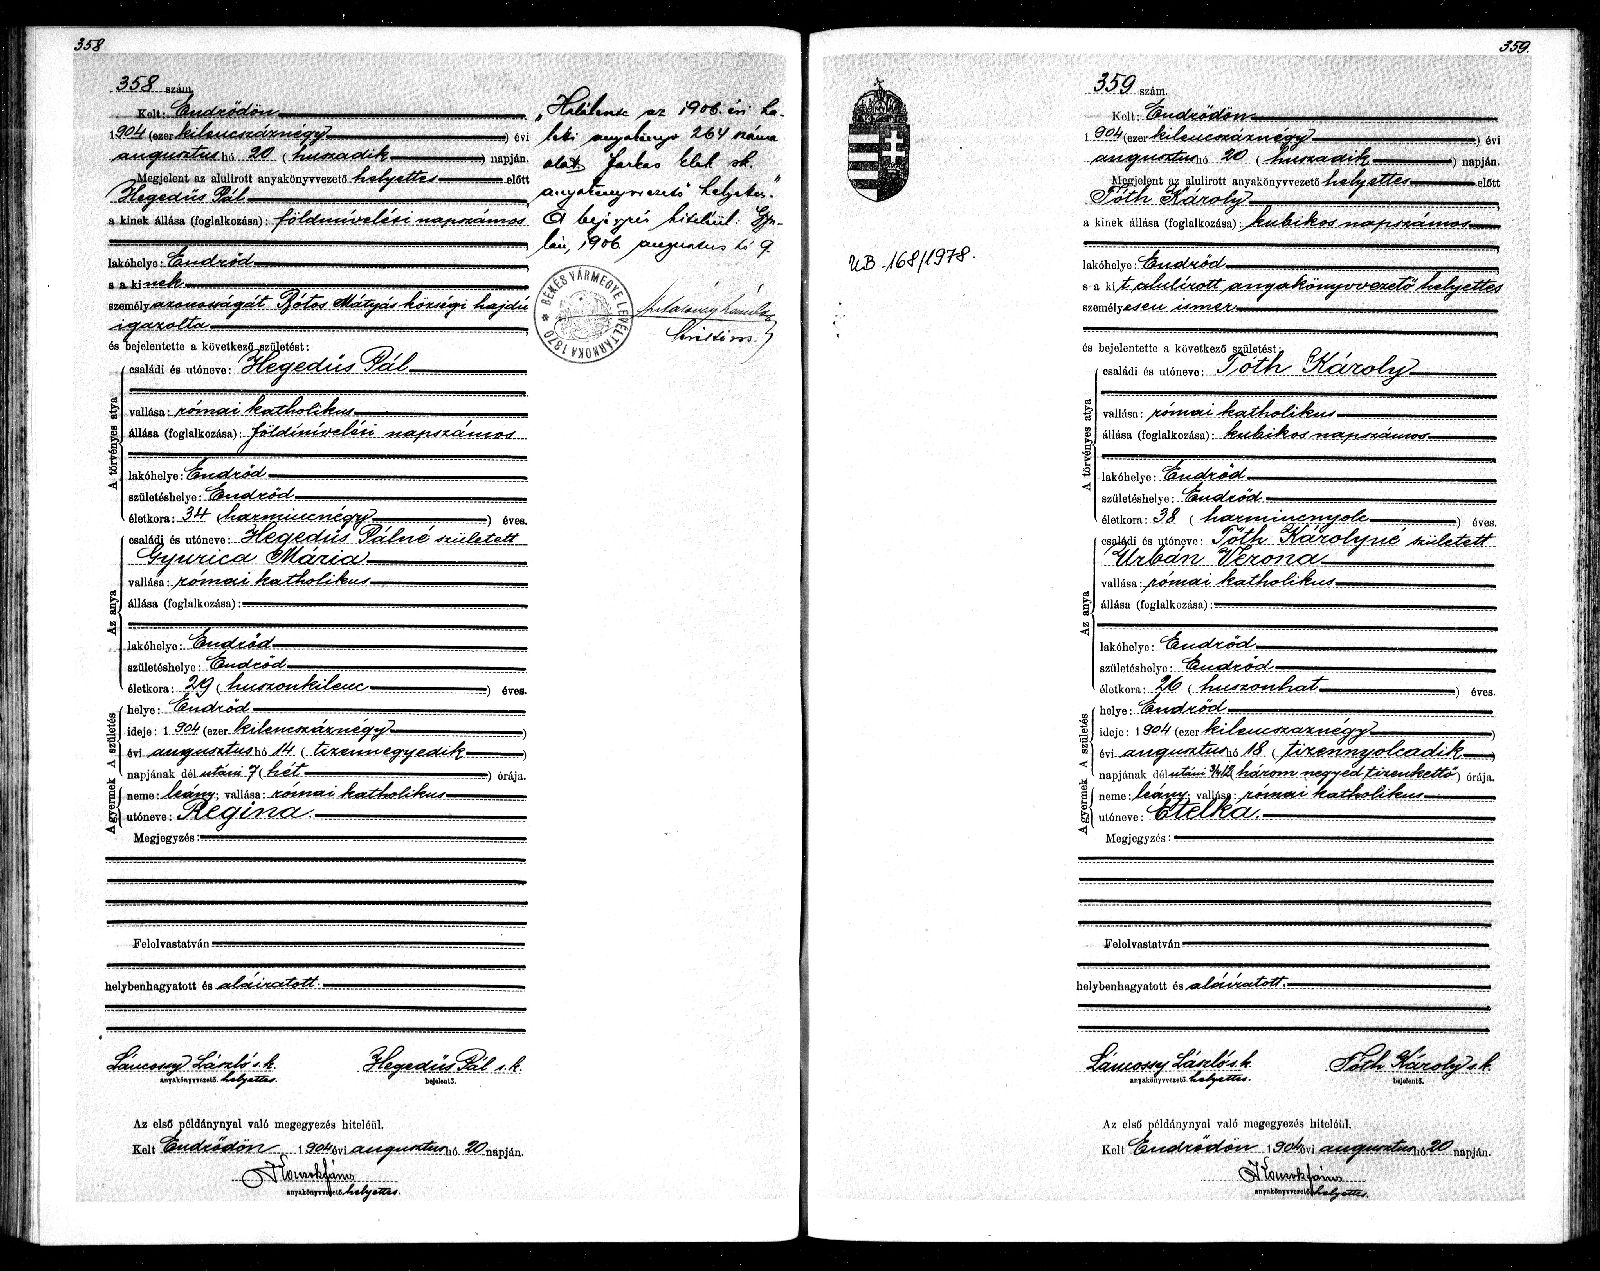 358
358 szám.
Kelt: Endrődön
1904 (ezer kilenczáznégy) évi
augusztus hó 20 (huszadik) napján.
Megjelent az alulirott anyakönyvvezető helyettes előtt
Hegedüs Pál
a kinek állása (foglalkozása): földmívelési napszámos
lakóhelye: Endrőd
s a kinek
személyazonosságát Rótos Mátyás községi hajdú
igazolta
és bejelentette a következő születést:
A törvényes atya
családi és utóneve: Hegedüs Pál
vallása: római katholikus
állása (foglalkozása): földmívelési napszámos
lakóhelye: Endrőd
születéshelye: Endrőd
életkora: 34 (harmincnégy) éves.
Az anya
családi és utóneve: Hegedüs Pálné született
Gyurica Mária
vallása: római katholikus
állása (foglalkozása):
lakóhelye: Endrőd
születéshelye: Endrőd
életkora: 29 (huszonkilenc) éves.
A születés
helye: Endrőd
ideje: 1904 (ezer kilenczáznégy)
évi augusztus hó 14 (tizennegyedik)
napjának dél utáni 7 (hét) órája.
A gyermek
neme: leány; vallása: római katholikus
utóneve: Regina.
Megjegyzés:
Felolvastatván
helybenhagyatott és aláiratott.
László s.k. Hegedüs Pál s.k.
anyakönyvvezető helyettes. bejelentő.
Az első példánynyal való megegyezés hiteléül.
Kelt Endrődön 1904 évi augusztus hó 20 napján.
anyakönyvvezető helyettes.
„Halálesete az 1906. évi ha-
láli anyakönyv 264 száma
alatt Farkas Elek sk.
anyakönyvvezető helyettes."
A bejegyzés hiteléül. Gyu-
lán, 1906 augusztus hó 9
BÉKÉS VÁRMEGYE LEVÉLTÁRNOKA 1870
359.
359 szám.
Kelt: Endrődön
1904 (ezer kilenczáznégy) évi
augusztus hó 20 (huszadik) napján.
Megjelent az alulirott anyakönyvvezető helyettes előtt
Tóth Károly
a kinek állása (foglalkozása): kubikos napszámos
lakóhelye: Endrőd
s a kit alulírott anyakönyvvezető helyettes
személyesen ismer
és bejelentette a következő születést:
A törvényes atya
családi és utóneve: Tóth Károly
vallása: római katholikus
állása (foglalkozása): kubikos napszámos
lakóhelye: Endrőd
születéshelye: Endrőd
életkora: 38 (harmincnyolc) éves.
Az anya
családi és utóneve: Tóth Károlyné született
Urbán Verona
vallása: római katholikus
állása (foglalkozása):
lakóhelye: Endrőd
születéshelye: Endrőd
életkora: 26 (huszonhat) éves.
A születés
helye: Endrőd
ideje: 1904 (ezer kilenczáznégy)
évi augusztus hó 18 (tizennyolcadik)
napjának dél utáni 3/4 12 (három negyed tizenkettő) órája.
A gyermek
neme: leány; vallása: római katholikus
utóneve: Etelka.
Megjegyzés:
Felolvastatván
helybenhagyatott és aláíratott.
László s.k. Tóth Károly s.k.
anyakönyvvezető helyettes. bejelentő.
Az első példánynyal való megegyezés hiteléül.
Kelt Endrődön 1904 évi augusztus hó 20 napján.
anyakönyvvezető helyettes.
UB-168/1978.